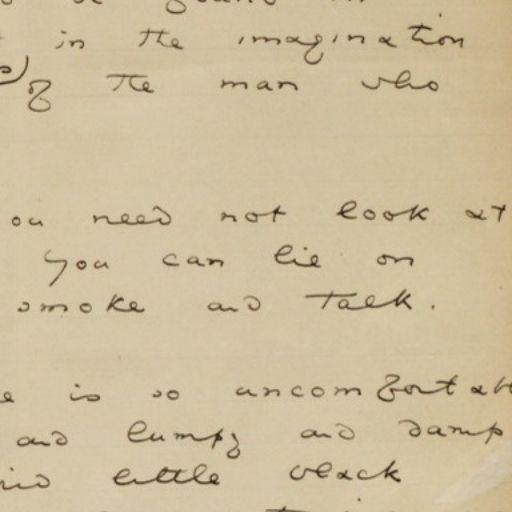 in the imagination
of the man who
need not look at
you can lie on
smoke and talk.
is so uncomfortab
and lumpy and damp
little black